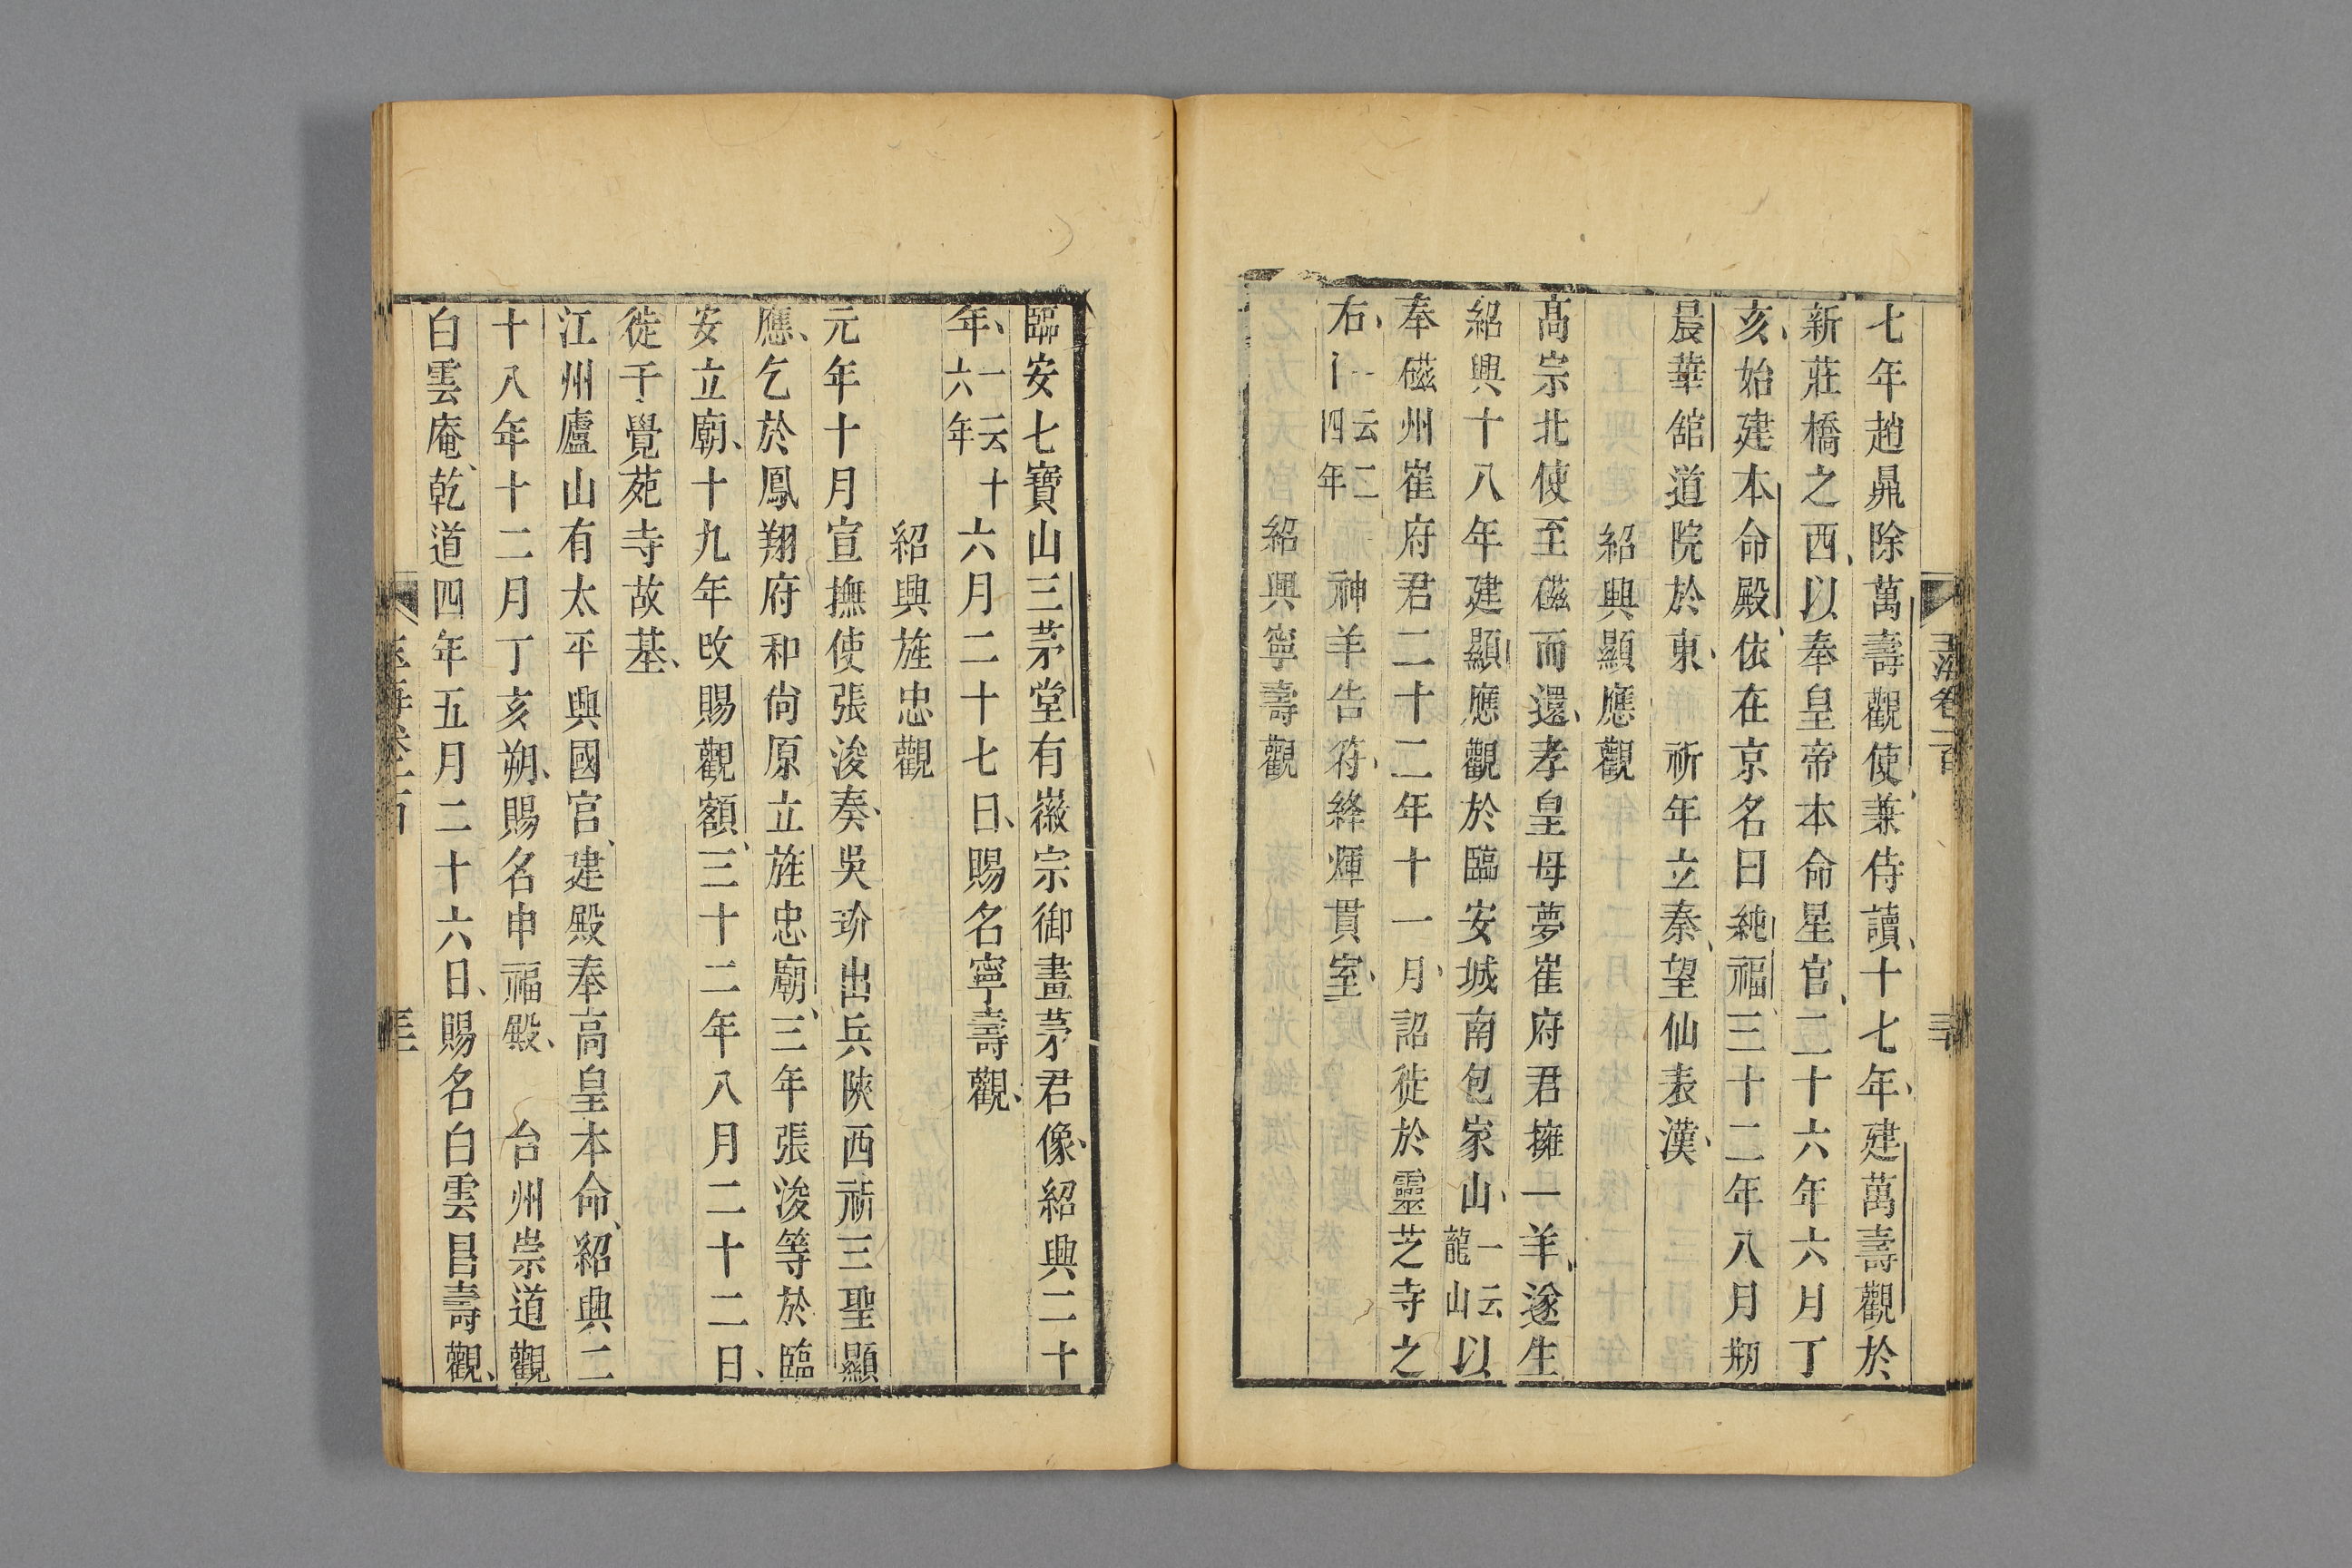 七年趙鼎除萬壽觀使兼侍讀十七年建萬壽觀於
新莊橋之西以奉皇帝本命星官二十六年六月丁
亥始建本命殿依在京名曰純福三十二年八月剏
晨華舘道院於東　祈年立秦望仙表漢
紹興顯應觀
髙宗北使至磁而還孝皇母夢崔府君擁一羊遂生
紹興十八年建顯應觀於臨安城南包家山一云龍山以
奉磁州崔府君二十二年十一月詔徙於靈芝寺之
右一云二十四年　神羊告符絳煇貫室
紹興寧壽觀
臨安七寶山三茅堂有徽宗御畫茅君像紹興二十
年一云十六年六月二十七日賜名寧壽觀
紹興旌忠觀
元年十月宣撫使張浚奏吳玠出兵陝西禱三聖顯
應乞於鳳翔府和尙原立旌忠廟三年張浚等於臨
安立廟十九年改賜觀額三十二年八月二十二日
徙于覺苑寺故基
江州廬山有太平興國宫建殿奉高皇本命紹興二
十八年十二月丁亥朔賜名申福殿　台州崇道觀
白雲庵乾道四年五月二十六日賜名白雲昌壽觀